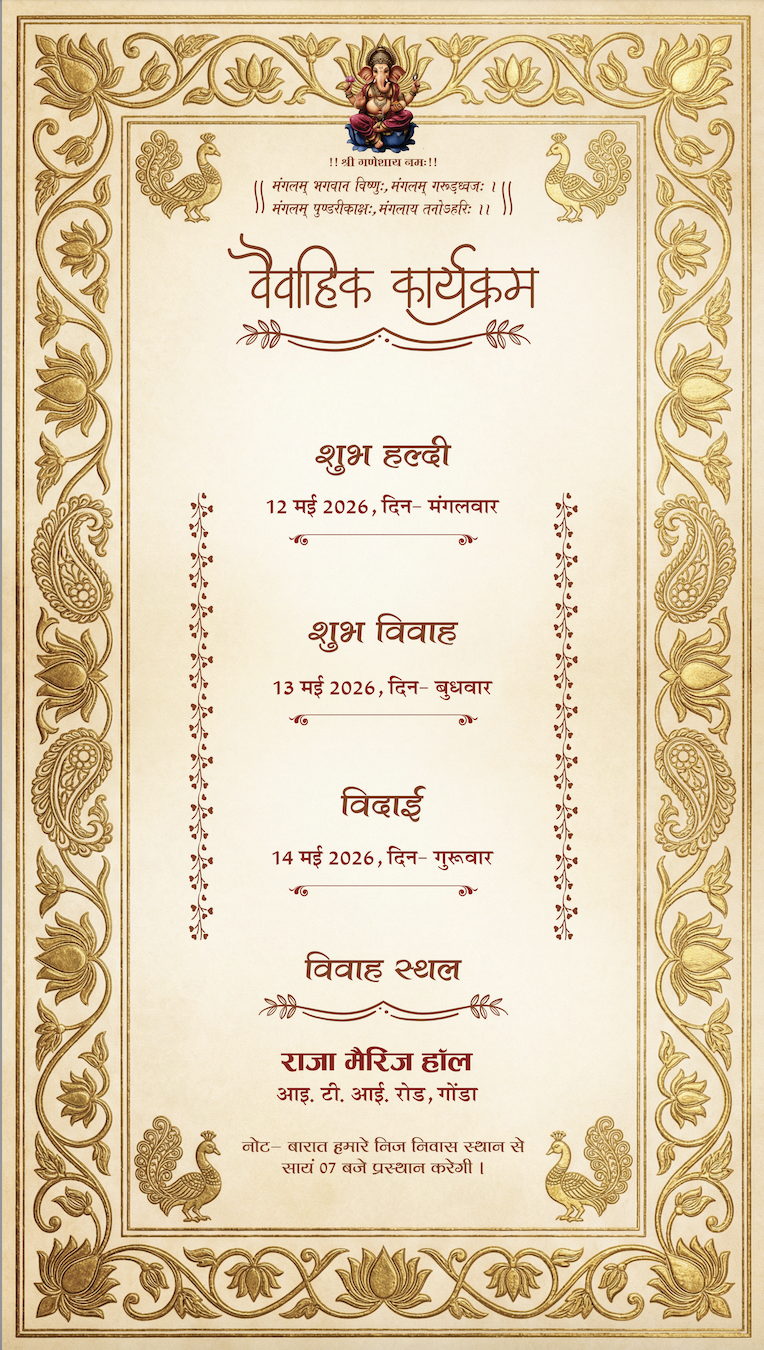 !! श्री गणेशाय नमः!!
मंगलम् भगवान विष्णुः, मंगलम् गरूड़ध्वजः ।
मंगलम् पुण्डरीकाक्षः, मंगलाय तनोऽहरिः ।।
वैवाहिक कार्यक्रम
शुभ हल्दी
12 मई 2026, दिन- मंगलवार
शुभ विवाह
13 मई 2026, दिन- बुधवार
विदाई
14 मई 2026, दिन- गुरूवार
विवाह स्थल
राजा मैरिज हॉल
आइ. टी. आई. रोड, गोंडा
नोट- बारात हमारे निज निवास स्थान से
सायं 07 बजे प्रस्थान करेगी ।